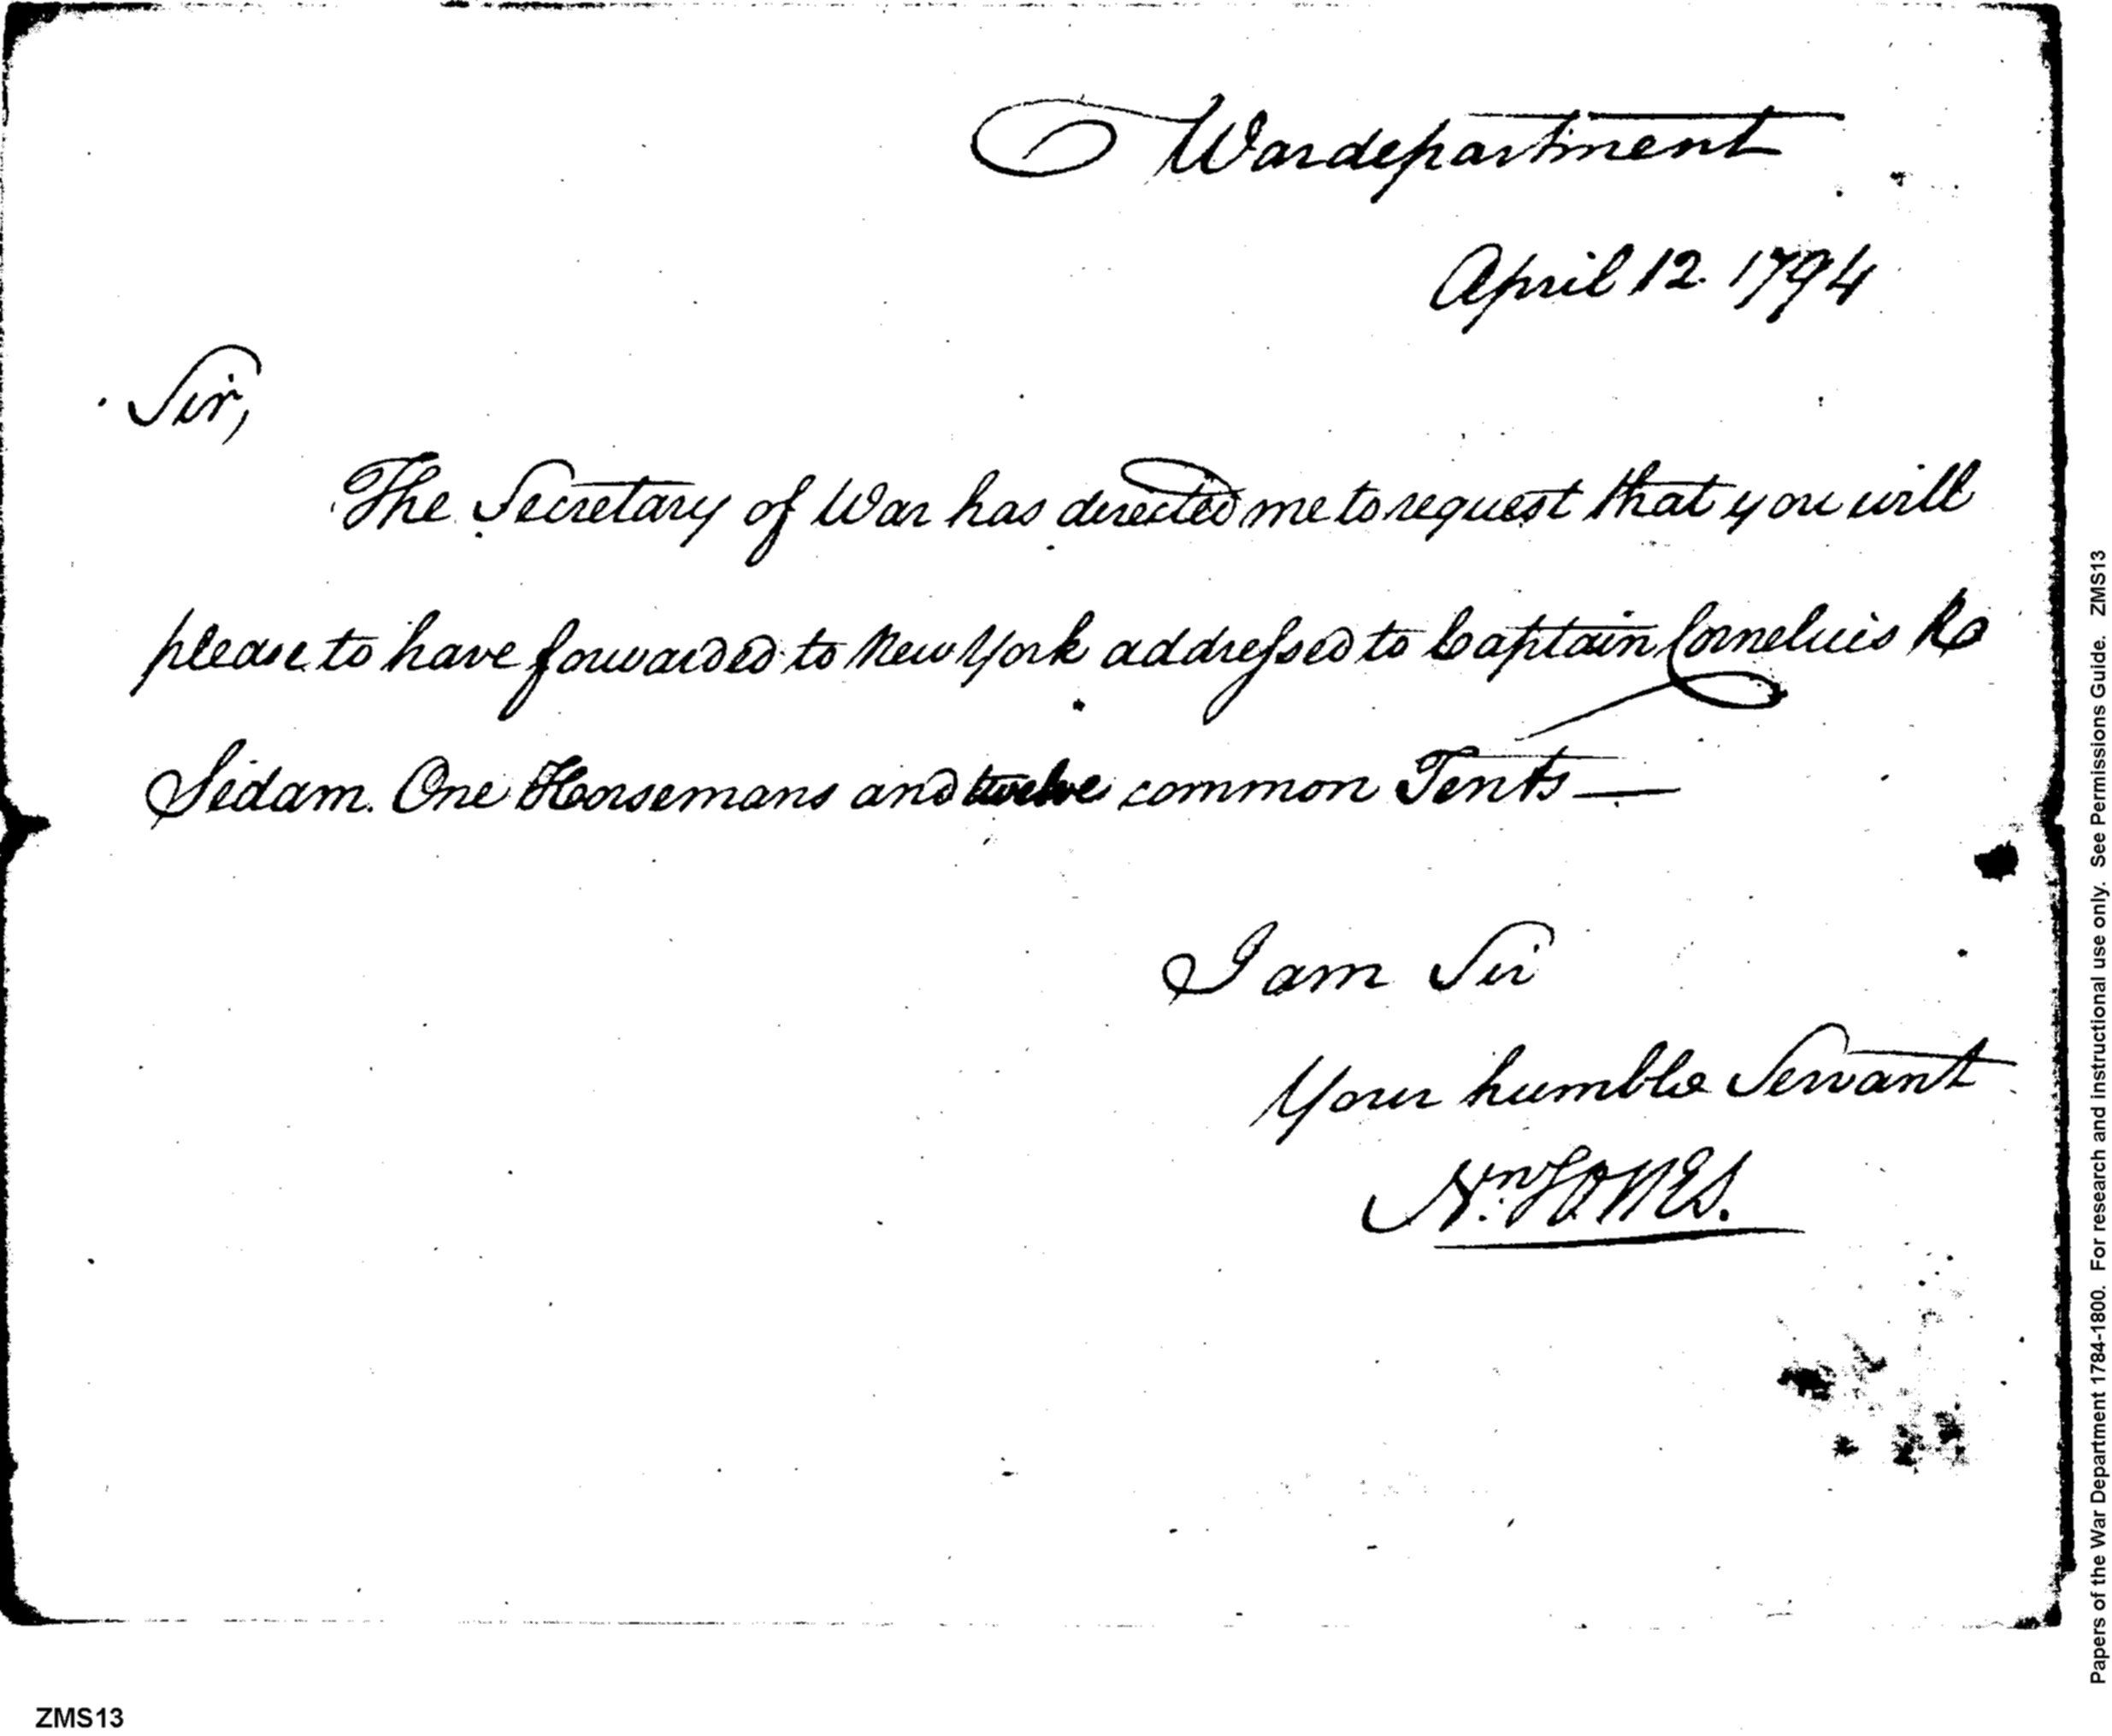 Wardepartment
April 12. 1794
Sir,
The Secretary of War has directed me to request that you will
please to have forwarded to New York addressed to Captain Cornelius Ro
Sedam. One Horsemans and twelve common Tents—
I am Sir
Your humble Servant
Jn.º Jones.
ZMS13
Papers of the War Department 1784-1800. For research and instructional use only. See Permissions Guide. ZMS13